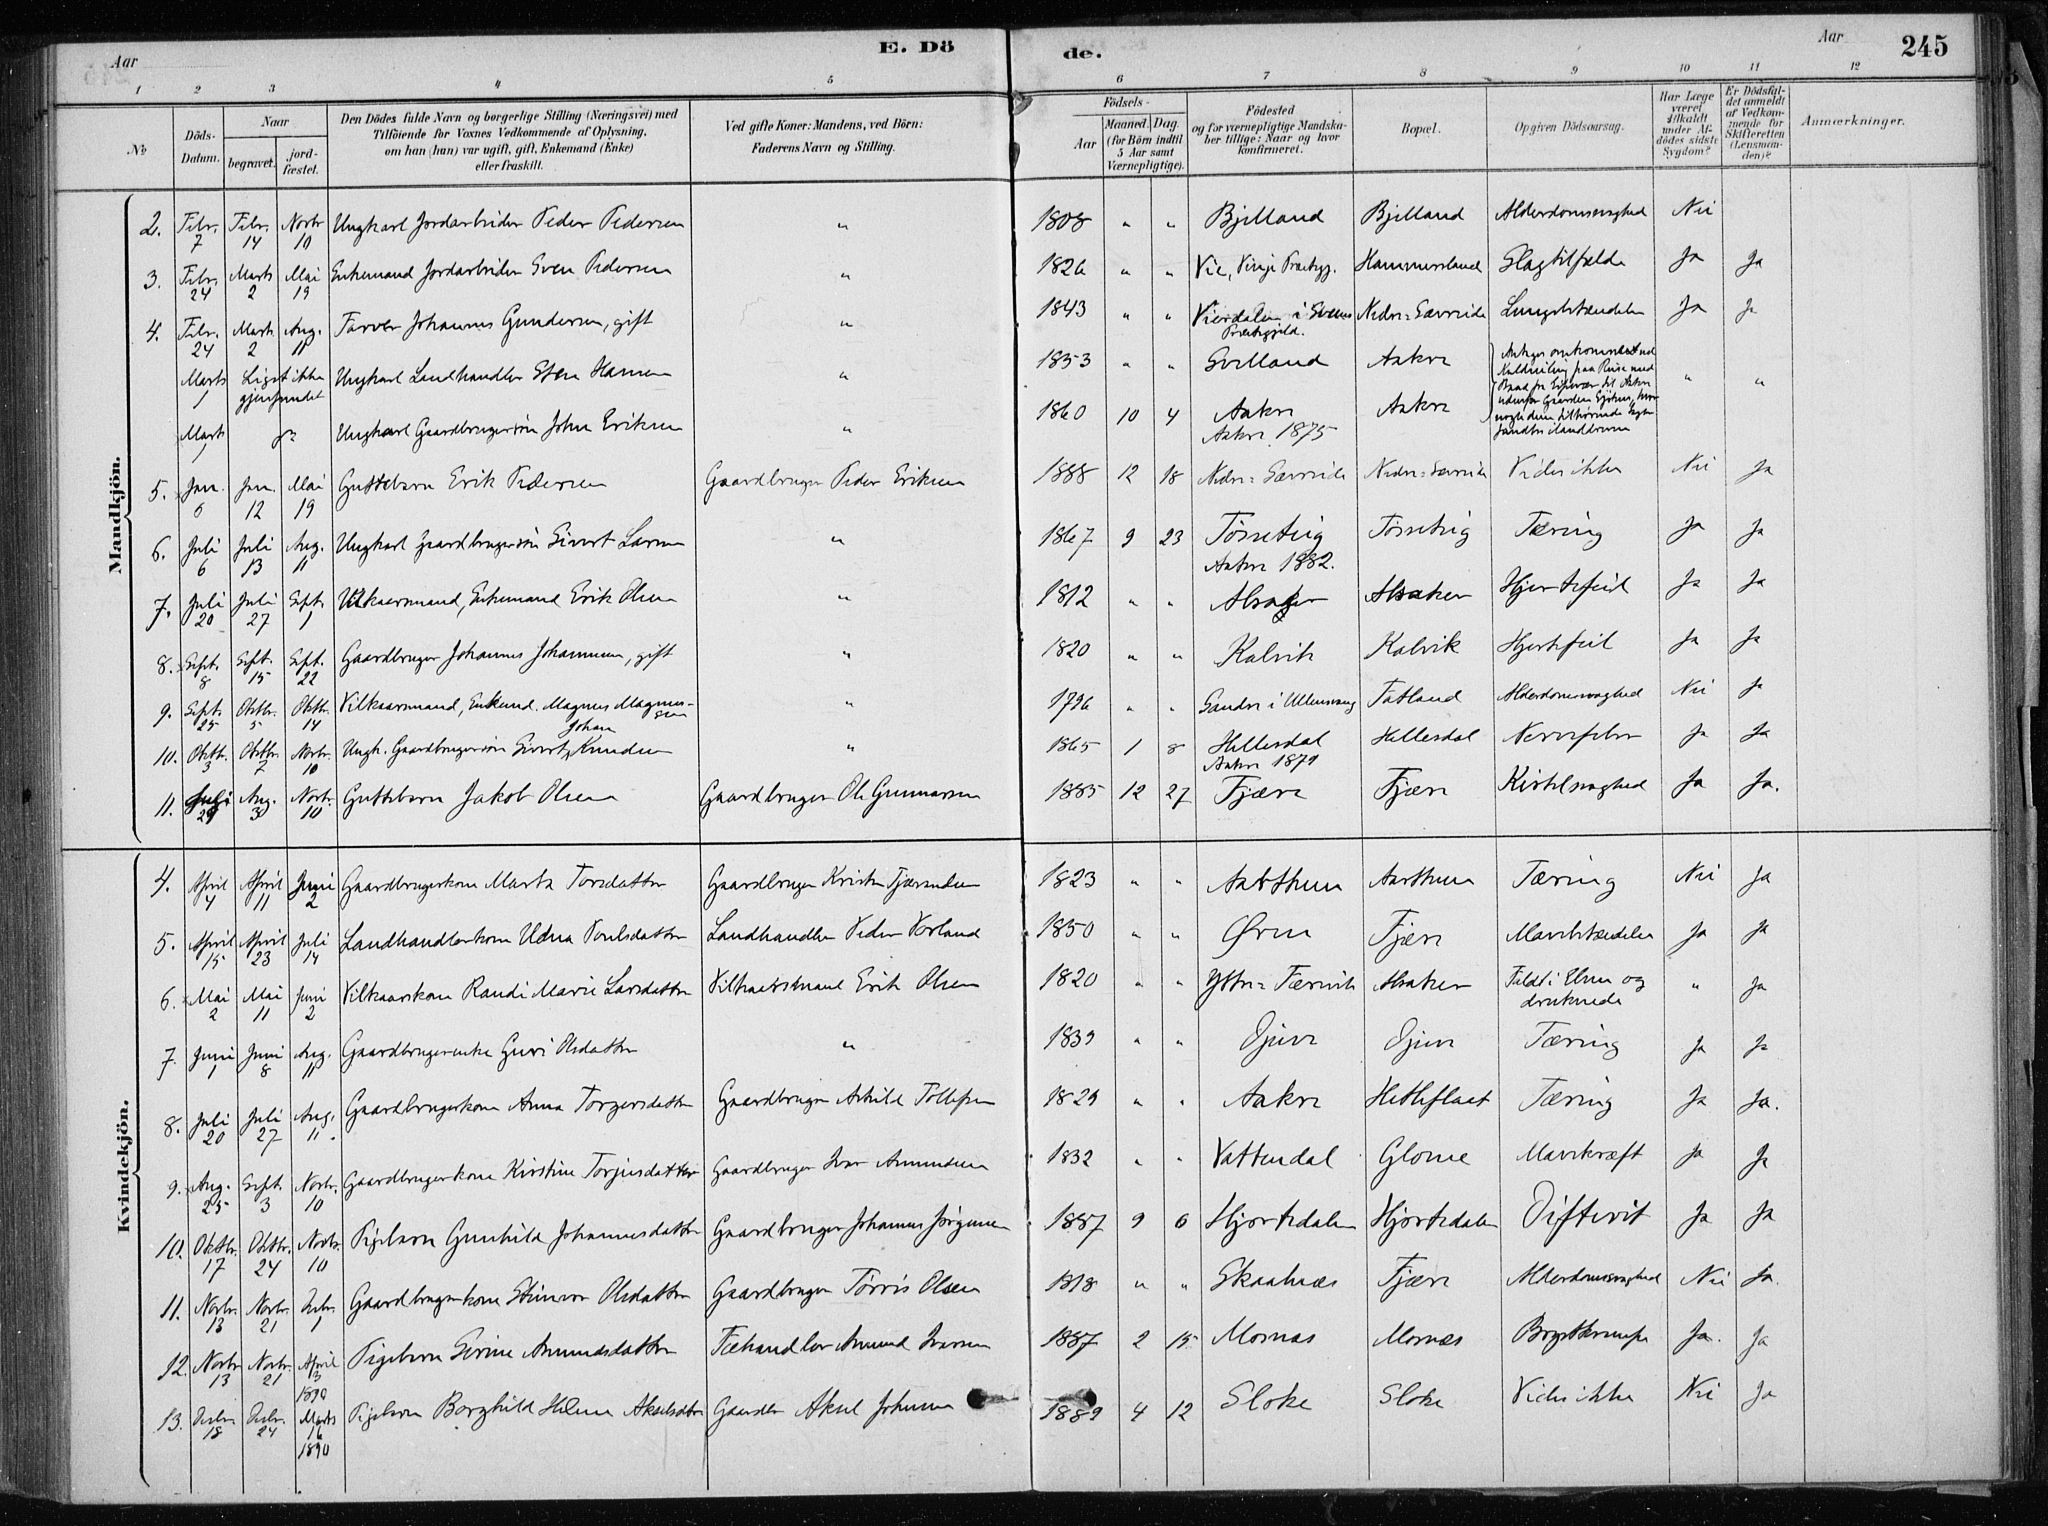 Aar
E. Dö
de.
Aar
245
1 2 3 4 5 6 7 8 9 10 11 12
№
Döds-Datum.
Naar
begravet.
jord-fæstet.
Den Dödes fulde Navn og borgerlige Stilling (Næringsvei) med
Tilföiende for Voxnes Vedkommende af Oplysning,
om han (hun) var ugift, gift, Enkemand (Enke)
eller fraskilt.
Ved gifte Koner: Mandens, ved Börn:
Faderens Navn og Stilling.
Födsels-
Aar
Maaned. Dag.
(for Börn indtil
5 Aar samt
Værnepligtige).
Födested
og for værnepligtige Mandska-
ber tillige: Naar og hvor
konfirmeret.
Bopæl.
Opgiven Dödsaarsag.
Har Læge
været
tilkaldt
under Af-
dödes sidste
Sygdom?
Er Dödsfal-
det anmeldt
af Vedkom-
mende for
Skifteretten
(Lensman-
den)?
Anmærkninger.
Mandkjön.
2. Febr. 7 Febr. 14 Novbr 10 Ungkarl Jordarbeider Peder Pedersen " 1808 " " Bjelland Bjelland Alderdomssvaghed Nei
3. Febr. 24 Marts 2 Mai 19 Enkemand Jordarbeider Sven Pedersen " 1826 " " Vie, Vinje Præstegj. Hammersland Slagtilfælde Ja Ja
4. Febr. 24 Marts 2 Aug. 11 Farver Johannes Gundersen, gift " 1843 " " i Præstegjeld. Nedre= Ja Ja
Marts 1 Liget ikke gjenfundet Ungkarl Landhandler Sten Hansen " 1853 " " Aakre " "
Marts 1 do Ungkarl Gaardbrugersøn John Eriksen " 1860 10 4 Aakre Aakre 1875 Aakre
5. Jan. 6 Jan. 12 Mai 19 Guttebarn Erik Pedersen Gaardbruger Peder Eriksen 1888 12 18 Nedre= Nedre= Vides ikke Nei Ja
6. Juli 6 Juli 13 Aug. 11 Ungkarl Gaardbrugersøn Sivert Larsen " 1867 9 23 Tøsseteig Aakre 1882. Tøsseteig Tæring Ja Ja
7. Juli 20 Juli 27 Sept. 1 Vilkaarsmand, Enkemand Erik Olsen " 1812 " " Alsaker Alsaker Hjertefeil Ja Ja
8. Sept. 8 Sept. 15 Sept. 22 Gaardbruger Johannes Johannesen, gift " 1820 " " Kalvik Kalvik Hjertefeil Ja Ja
9. Sept. 25 Oktbr. 5 Oktbr. 14 Vilkaarsmand, Enkemd. Magnus Magnus-sen " 1796 " " Sandve i Ullensvang Tatland Alderdomssvaghed Nei Ja
10. Oktbr. 3 Oktbr. 7 Novbr. 10 Ungk. Gaardbrugersøn Sivert Johan Knudsen " 1865 1 8 Hellesdal Aakre 1879 Hellesdal Nervefeber Ja Ja
11. Juli 29 Aug. 3 Novbr. 10 Guttebarn Jakob Olsen Gaardbruger Ole Gunnarsen 1885 12 27 Fjære Fjære Kirtelsvaghed Ja Ja.
Kvindekjön.
4. April 4 April 11 Juni 2 Gaardbrugerkone Marta Torsdatter Gaardbruger Kristen 1823 " " Tæring Nei Ja
5. April 15 April 23 Juli 14 Landhandlerkone Udna Poulsdatter Landhandler Peder Vorland 1850 " " Fjære Ja Ja
6. Mai 2 Mai 11 Juni 2 Vilkaarskone Randi Marie Larsdatter Vilkaarsmand Erik Olsen 1820 " " Ytre= Alsaker Faldt i Elven og druknede " Ja
7. Juni 1 Juni 8 Aug. 11 Gaardbrugerenke Guri Olsdatter " 1839 " " Djuve Djuve Tæring Ja Ja
8. Juli 20 Juli 27 Aug. 11 Gaardbrugerkone Anna Torgersdatter Gaardbruger Askild Tollefsen 1829 " " Aakre Hetleflaat Tæring Ja Ja.
9. Aug. 25 Sept. 3 Novbr. 10 Gaardbrugerkone Kirstine Torjusdatter Gaardbruger Ivar Amundsen 1832 " " Vattendal Glome Mavekræft Ja Ja
10. Oktbr. 17 Oktbr. 24 Novbr. 10 Pigebarn Gunhild Johannesdatter Gaardbruger Johannes Jørgensen 1887 9 6 Hjortedalen Hjortedalen Difterit Ja Ja
11. Novbr. 13 Novbr. 21 Decbr. 1 Gaardbrugerkone Steinvor Olsdatter Gaardbruger Tørris Olsen 1818 " " Skaalnæs Fjære Alderdomssvaghed Nei Ja
12. Novbr 13 Novbr. 21 April 3 1890 Pigebarn Serine Amundsdatter Fæhandler Amund Ivarsen 1887 2 15 Mosnæs Mosnæs Brystkrampe Ja. Ja
13. Decbr 18 Decbr. 24 Marts 16 1890 Pigebarn Borghild Helene Akselsdatter Aksel Johnsen 1889 4 12 Sloke Sloke Vides ikke Nei Ja